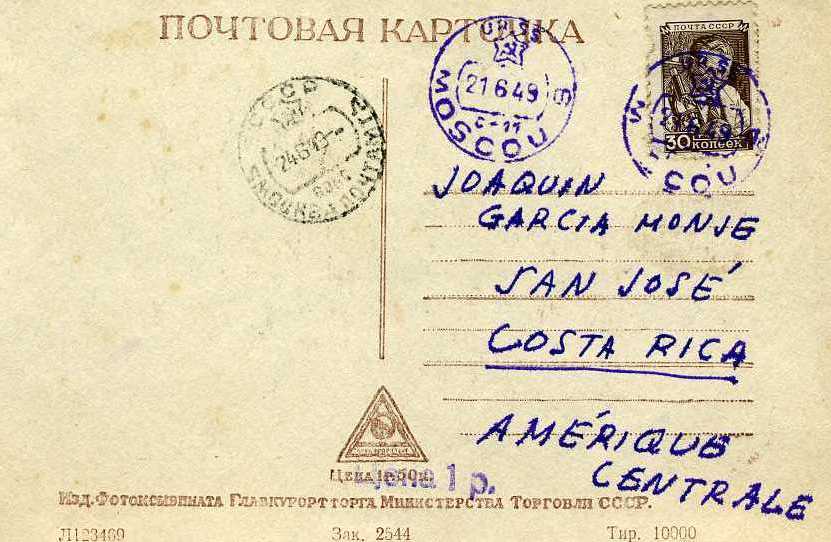 ПОЧТОВАЯ КАРТОЧКА
ПОЧТА СССР
30 КОПЕЕК
URSS
21 6 49
с-11
MOSCOU
СССР
24 6 49
JOAQUIN
GARCIA MONJE
SAN JOSÉ
COSTA RICA
AMÉRIQUE
CENTRALE
Цена 1 р.
Изд. Фотокомбината Главкурортторга Министерства Торговли СССР.
Л123469
Зак. 2544
Тир. 10000